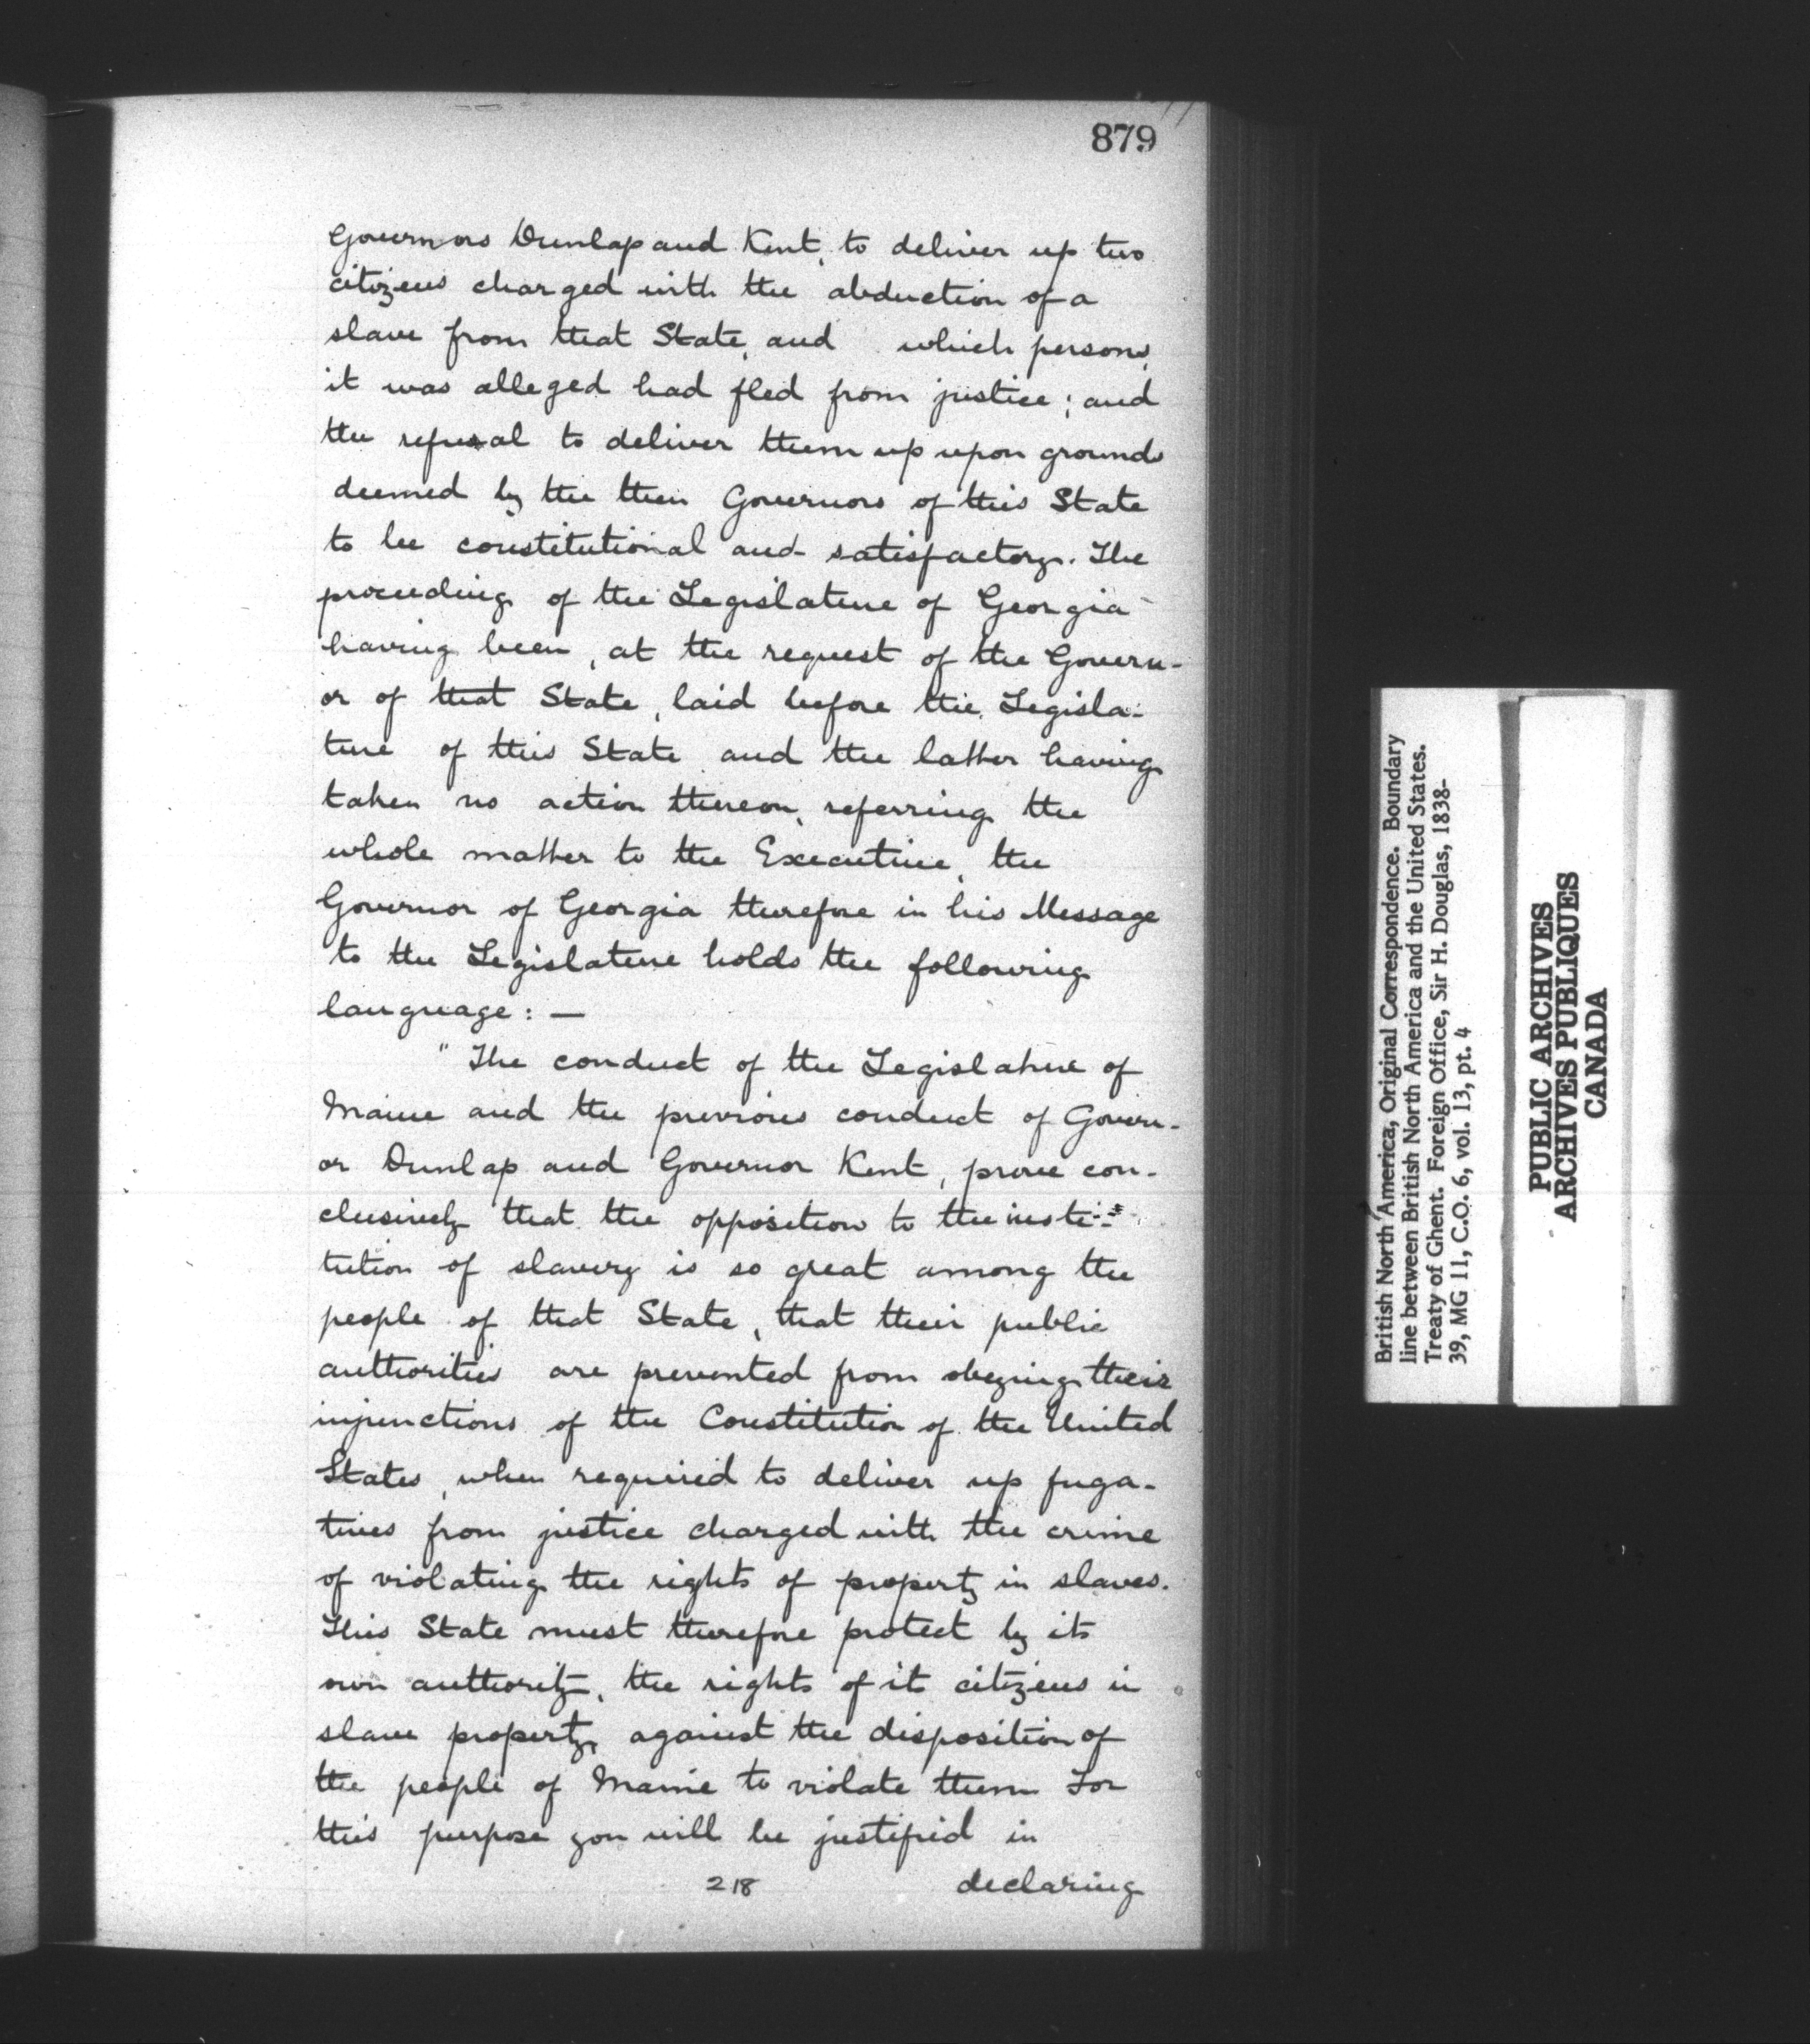 879
Governors Dunlap and Kent, to deliver up two
citizens charged with the abduction of a
slave from that State, and which persons,
it was alleged had fled from justice; and
the refusal to deliver them up upon grounds
deemed by the then Governors of this State
to be constitutional and satisfactory. The
proceeding of the Legislature of Georgia
having been, at the request of the Govern-
or of that State, laid before the Legisla-
ture of this State and the latter having
taken no action thereon, referring the
whole matter to the Executive, the
Governor of Georgia therefore in his Message
to the Legislature holds the following
language: —
" The conduct of the Legislature of
Maine and the previous conduct of Govern-
or Dunlap and Governor Kent, prove con-
clusively that the opposition to the insti-
tution of slavery is so great among the
people of that State, that their public
authorities are prevented from obeying their
injunctions of the Constitution of the United
States, when required to deliver up fuga-
tives from justice charged with the crime
of violating the rights of property in slaves.
This State must therefore protect by its
own authority, the rights of its citizens in
slave property, against the disposition of
the people of Maine to violate them For
this purpose you will be justified in
218 declaring
British North America, Original Correspondence. Boundary
line between British North America and the United States.
Treaty of Ghent. Foreign Office, Sir H. Douglas, 1838-
39, MG 11, C.O. 6, vol. 13, pt. 4
PUBLIC ARCHIVES
ARCHIVES PUBLIQUES
CANADA